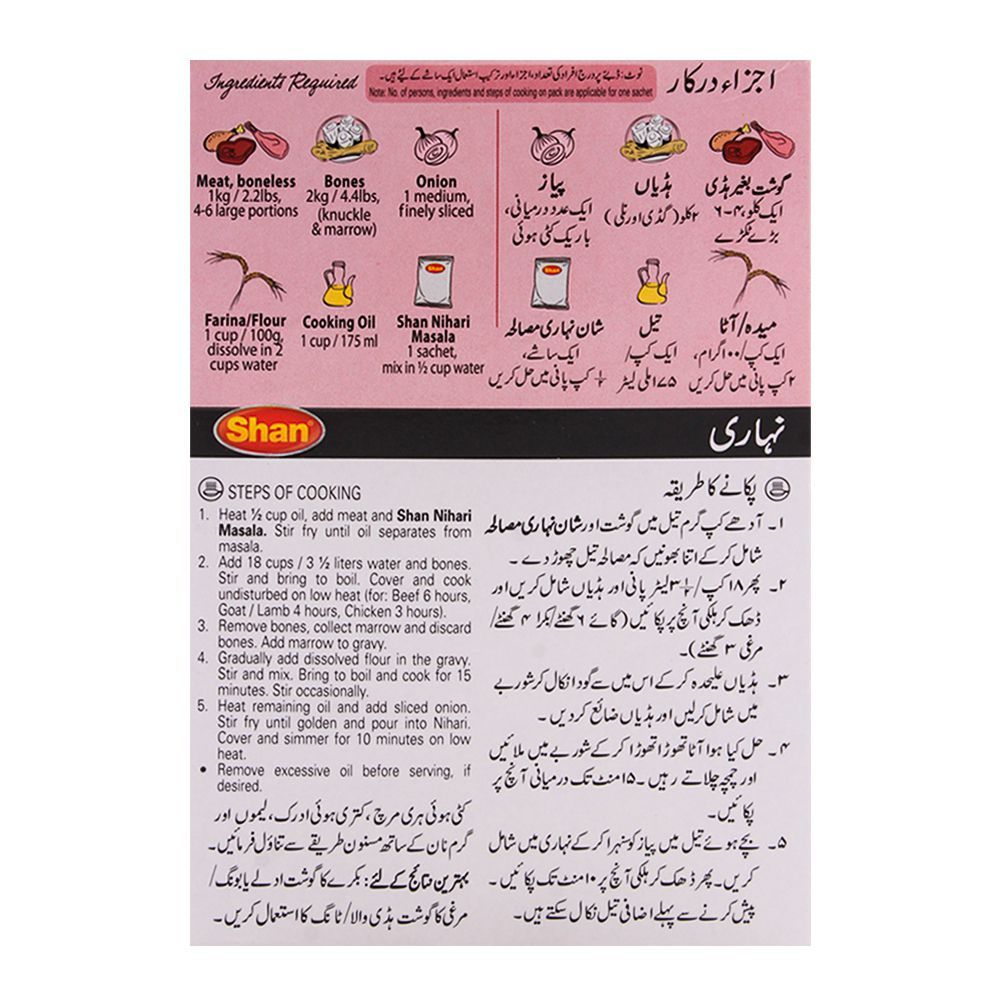 Ingredients Required
نوٹ: ڈبے پر درج افراد کی تعداد، اجزاء اور ترکیب استعمال ایک ساشے کے لئے ہیں۔
Note: No. of persons, ingredients and steps of cooking on pack are applicable for one sachet
اجزاء درکار
Meat, boneless
1kg / 2.2lbs,
4-6 large portions
Bones
2kg / 4.4lbs,
(knuckle
& marrow)
Onion
1 medium,
finely sliced
گوشت بغیر ہڈی
ایک کلو، ۴-۶
بڑے ٹکڑے
ہڈیاں
۲ کلو (گڈی اور نلی)
پیاز
ایک عدد درمیانی،
باریک کٹی ہوئی
Farina/Flour
1 cup / 100g,
dissolve in 2
cups water
Cooking Oil
1 cup / 175 ml
Shan
Shan Nihari
Masala
1 sachet,
mix in ½ cup water
میدہ/آٹا
ایک کپ/۱۰۰ گرام،
۲ کپ پانی میں حل کریں
تیل
ایک کپ/
۱۷۵ ملی لیٹر
Shan
شان نہاری مصالحہ
ایک ساشے،
½ کپ پانی میں حل کریں
Shan
نہاری
STEPS OF COOKING
1. Heat ½ cup oil, add meat and Shan Nihari
Masala. Stir fry until oil separates from
masala.
2. Add 18 cups / 3 ½ liters water and bones.
Stir and bring to boil. Cover and cook
undisturbed on low heat (for: Beef 6 hours,
Goat / Lamb 4 hours, Chicken 3 hours).
3. Remove bones, collect marrow and discard
bones. Add marrow to gravy.
4. Gradually add dissolved flour in the gravy.
Stir and mix. Bring to boil and cook for 15
minutes. Stir occasionally.
5. Heat remaining oil and add sliced onion.
Stir fry until golden and pour into Nihari.
Cover and simmer for 10 minutes on low
heat.
• Remove excessive oil before serving, if
desired.
پکانے کا طریقہ
۱۔ آدھے کپ گرم تیل میں گوشت اور شان نہاری مصالحہ
شامل کر کے اتنا بھونیں کہ مصالحہ تیل چھوڑ دے۔
۲۔ پھر ۱۸ کپ/½۳ لیٹر پانی اور ہڈیاں شامل کریں اور
ڈھک کر ہلکی آنچ پر پکائیں (گائے ۶ گھنٹے/بکرا ۴ گھنٹے/
مرغی ۳ گھنٹے)۔
۳۔ ہڈیاں علیحدہ کر کے اس میں سے گودا نکال کر شوربے
میں شامل کرلیں اور ہڈیاں ضائع کر دیں۔
۴۔ حل کیا ہوا آٹا تھوڑا تھوڑا کر کے شوربے میں ملائیں
اور چمچہ چلاتے رہیں۔ ۱۵ منٹ تک درمیانی آنچ پر
پکائیں۔
۵۔ بچے ہوئے تیل میں پیاز کو سنہرا کر کے نہاری میں شامل
کریں۔ پھر ڈھک کر ہلکی آنچ پر ۱۰ منٹ تک پکائیں۔
پیش کرنے سے پہلے اضافی تیل نکال سکتے ہیں۔
کٹی ہوئی ہری مرچ، کتری ہوئی ادرک، لیموں اور
گرم نان کے ساتھ مسنون طریقے سے تناؤل فرمائیں۔
بہترین نتائج کے لئے: بکرے کا گوشت ادلے یا بونگ/
مرغی کا گوشت ہڈی والا/ٹانگ کا استعمال کریں۔